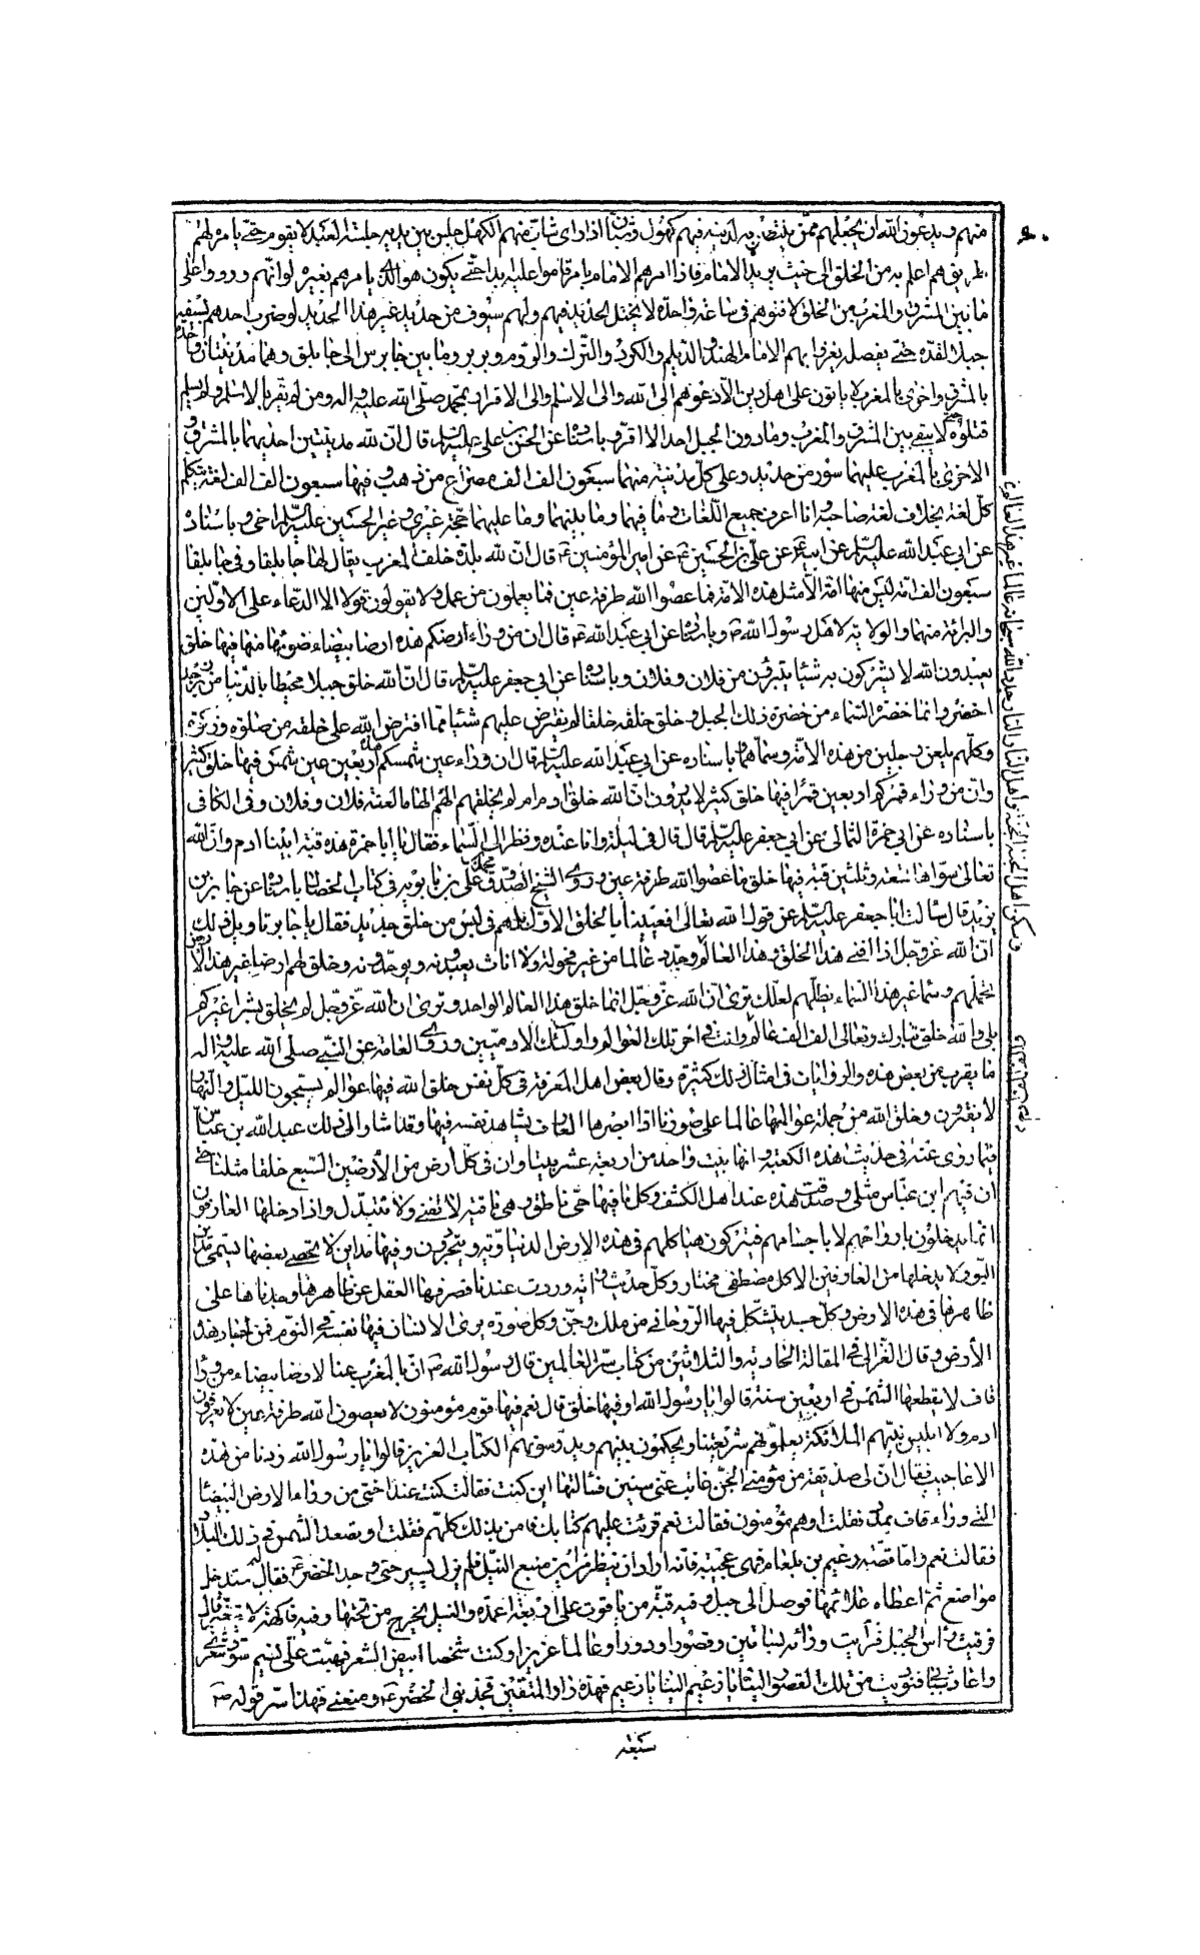 منهم ويدعون الله ان يجعلهم ممن ينتصر به لدينه فيهم كهول وشبان اذا راى شاب منهم الكهل جلس بين يديه جلسة العبد لا يقوم حتى يامره لهم
طريق هم اعلم به من الخلق الى حيث يريد الامام فاذا امرهم الامام بامر قاموا عليه ابدا حتى يكون هو الذى يامرهم بغيره لو انهم وردوا على
ما بين المشرق والمغرب من الخلق لافنوهم فى ساعة واحدة لا يختل الحديد فيهم ولهم سيوف من حديد غير هذا الحديد لو ضرب احدهم بسيفه
جبلا لقده حتى يفصله يغزو بهم الامام الهند والديلم والكرد والترك والروم وبربر وما بين جابرس الى جابلق وهما مدينتان واحدة
بالمشرق واخرى بالمغرب لا ياتون على اهل دين الا دعوهم الى الله والى الاسلام والى الاقرار بمحمد صلى الله عليه واله ومن لم يقر بالاسلام ولم يسلم
قتلوه حتى لا يبقى بين المشرق والمغرب وما دون الجبل احد الا اقر وباسناده عن الحسن بن على عليه السلام قال ان لله مدينتين احديهما بالمشرق و
الاخرى بالمغرب عليهما سور من حديد وعلى كل مدينة منهما سبعون الف الف مصراع من ذهب وفيها سبعون الف الف لغة يتكلم
كل لغة بخلاف لغة صاحبه وانا اعرف جميع اللغات وما فيهما وما بينهما وما عليهما حجة غيرى وغير الحسين عليه السلام اخى وباسناده
عن ابى عبد الله عليه السلام عن ابيه ع عن على بن الحسين ع عن امير المؤمنين ع قال ان لله بلدة خلف المغرب يقال لها جابلقا وفى جابلقا
سبعون الف امة ليس منها امة الا مثل هذه الامة فما عصوا الله طرفة عين فما يعملون من عمل ولا يقولون قولا الا الدعاء على الاولين
والبرائة منهما والولاية لاهل رسول الله ص وباسناده عن ابى عبد الله ع قال ان من وراء ارضكم هذه ارضا بيضاء ضوئها منها فيها خلق
يعبدون الله لا يشركون به شيئا يتبرؤن من فلان وفلان وباسناده عن ابى جعفر عليه السلم قال ان الله خلق جبلا محيطا بالدنيا من زبرجد
اخضر وانما خضرة السماء من خضرة ذلك الجبل وخلق خلفه خلقا لم يفرض عليهم شيئا مما افترض الله على خلقه من صلوة وزكوة
وكلهم يلعن رجلين من هذه الامة وسماهما باسناده عن ابى عبد الله عليه السلم قال ان وراء عين شمسكم هذه اربعين عين شمس فيها خلق كثير
وان من وراء قمركم اربعين قمرا فيها خلق كثير لا يدرون ان الله خلق ادم ام لم يخلقه الهموا الهاما لعنة فلان وفلان وفى الكافى
باسناده عن ابى حمزة الثمالى عن ابى جعفر عليه السلم قال قال فى ليلة وانا عنده ونظر الى السماء فقال يا ابا حمزة هذه قبة ابينا ادم وان لله
تعالى سواها تسعة وثلثين قبة فيها خلق ما عصوا الله طرفة عين وروى الشيخ الصدوق محمد بن على بن بابويه فى كتاب الخصال باسناده عن جابر بن
يزيد قال سالت ابا جعفر عليه السلم عن قول الله تعالى افعيينا بالخلق الاول بل هم فى لبس من خلق جديد فقال يا جابر تاويل ذلك
ان الله عز وجل اذا افنى هذا الخلق وهذا العالم وجدد عالما من غير فحولة ولا اناث يعبدونه ويوحدونه وخلق لهم ارضا غير هذه الارض
تحملهم وسماء غير هذه السماء يظلهم لعلك ترى ان الله عز وجل انما خلق هذا العالم الواحد وترى ان الله عز وجل لم يخلق بشرا غيركم
بلى والله خلق تبارك وتعالى الف الف عالم وانت فى اخر تلك العوالم واولئك الادميين وروى العامة عن النبى صلى الله عليه واله
ما يقرب من بعض هذه والروايات فى امثال ذلك كثيرة وقال بعض اهل المعرفة فى كل نفس خلق الله فيها عوالم يسبحون الليل والنهار
لا يفترون وخلق الله من جملة عوالمها عالما على صورنا اذا ابصرها العارف يشاهد نفسه فيها وقد اشار الى ذلك عبد الله بن عباس
فيما روى عنه فى حديث هذه الكعبة وانها بيت واحد من اربعة عشر بيتا وان فى كل ارض من الارضين السبع خلقا مثلنا حتى
ان فيهم ابن عباس مثلى وصدقت هذه عند اهل الكشف وكل ما فيها حى ناطق وهى باقية لا تفنى ولا تتبدل واذا دخلها العارفون
انما يدخلون بارواحهم لا باجسامهم فيتركون هياكلهم فى هذه الارض الدنياوية ويتجردون وفيها مداين لا تحصى بعضها يسمى مداين
النور لا يدخلها من العارفين الا كل مصطفى مختار وكل حديث واية وردت عندنا فصرفها العقل عن ظاهرها وجدناها على
ظاهرها فى هذه الارض وكل جسد يتشكل فيها الروحانى من ملك وجن وكل صورة يرى الانسان فيها نفسه فى النوم فمن اجساد هذه
الارض وقال الغزالى فى المقالة الحادية والثلاثين من كتاب سر العالمين قال رسول الله ص ان بالمغرب عنا لارضا بيضاء من وراء
قاف لا يقطعها الشمس فى اربعين سنة قالوا يا رسول الله او فيها خلق قال نعم فيها قوم مؤمنون لا يعصون الله طرفة عين لا يعرفون
ادم ولا ابليس نبيهم الملائكة يعلمونهم شريعتنا ويحكمون بينهم ويدرسونهم الكتاب العزيز قالوا يا رسول الله زدنا من هذه
الاعاجيب فقال ان لى صديقة من مؤمنى الجن غابت عنى سنين فسالتها اين كنت فقالت كنت عند اختى من وراء الارض البيضاء
التى وراء قاف فقلت اوهم مؤمنون فقالت نعم قرئت عليهم كتابك فامن بذلك كلهم فقلت او يصعد الشمس فى ذلك البلد
فقالت نعم واما قصة زعيم بن بلعام فهى عجيبة فانه اراد ان ينظر من اين منبع النيل فلم يزل يسير حتى وجد الخضر ع فقال له ستدخل
مواضع ثم اعطاه علائمها فوصل الى جبل وفيه قبة من ياقوت على اربعة اعمدة والنيل يخرج من تحتها وفيه فاكهة لا تتغير قال
فرقيت راس الجبل فرايت وراءه بساتين وقصورا ودورا وعالما عزيزا وكنت شخصا ابيض الشعر فهبت على نسيم سود شعرى
واعاد شبابى فنوديت من تلك القصور الينا يا زعيم الينا يا زعيم فهذه دار المتقين فجذبنى الخضر ع ومنعنى فهذا سر قوله ص
سبعة